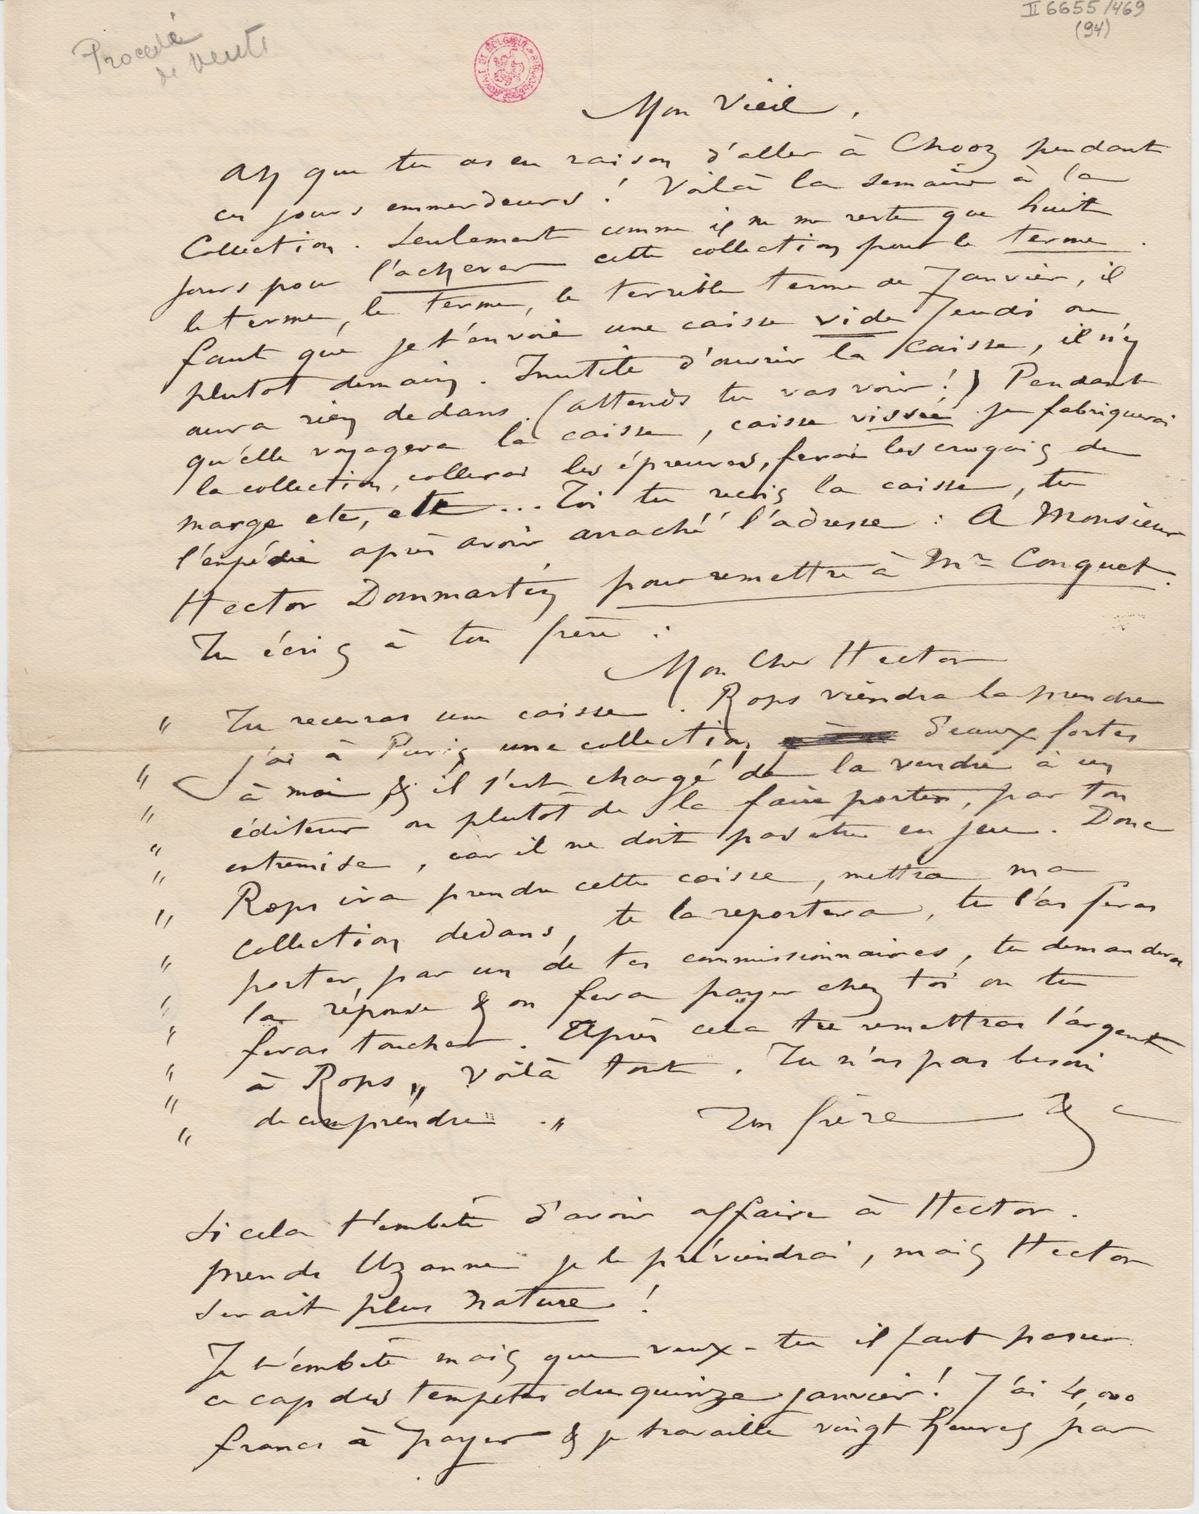 II 6655/469
(94)
Procédé
de vente
Mon Vieil,
Ah que tu as eu raison d'aller à Chooz pendant
ces jours emmerdeurs ! Voilà la semaine à la
Collection. Seulement comme il ne me reste que huit
jours pour l'achever cette collection pour le terme.
le terme, le terme, le terrible terme de Janvier, il
faut que je t'envoie une caisse vide Jeudi ou
plutot demain. Inutile d'ouvrir la caisse, il n'y
aura rien dedans. (attends tu vas voir !) Pendant
qu'elle voyagera la caisse, caisse vissée je fabriquerai
la collection, collerai les épreuves, ferai les croquis de
marge etc, etc... Toi tu reçois la caisse, tu
l'expédie après avoir arraché l'adresse : A Monsieur
Hector Dommartin pour remettre à Mr Conquet.
Tu écris à ton frère :
Mon Cher Hector
" Tu recevras une caisse. Rops viendra la prendre
" J'ai à Paris une collection d'eaux fortes
" à moi & il s'est chargé de la vendre à un
" éditeur ou plutôt de la faire porter, par ton
" entremise, car il ne doit pas être en jeu. Donc
" Rops ira prendre cette caisse, mettra ma
" collection dedans, te la reportera, tu l'as feras
" porter, par un de tes commissionnaires, tu demandera
" la réponse & on fera payer chez toi ou tu
" feras toucher. Après cela tu remettras l'argent
" à Rops " Voilà tout. Tu n'as pas besoin
" de comprendre ."
Ton frère &c
Si cela t'embête d'avoir affaire à Hector.
prends Uzanne je le préviendrai, mais Hector
serait plus nature !
Je t'embête mais que veux-tu il faut passer
ce cap des tempêtes du quinze janvier ! J'ai 4,000
francs à payer & je travaille vingt heures par